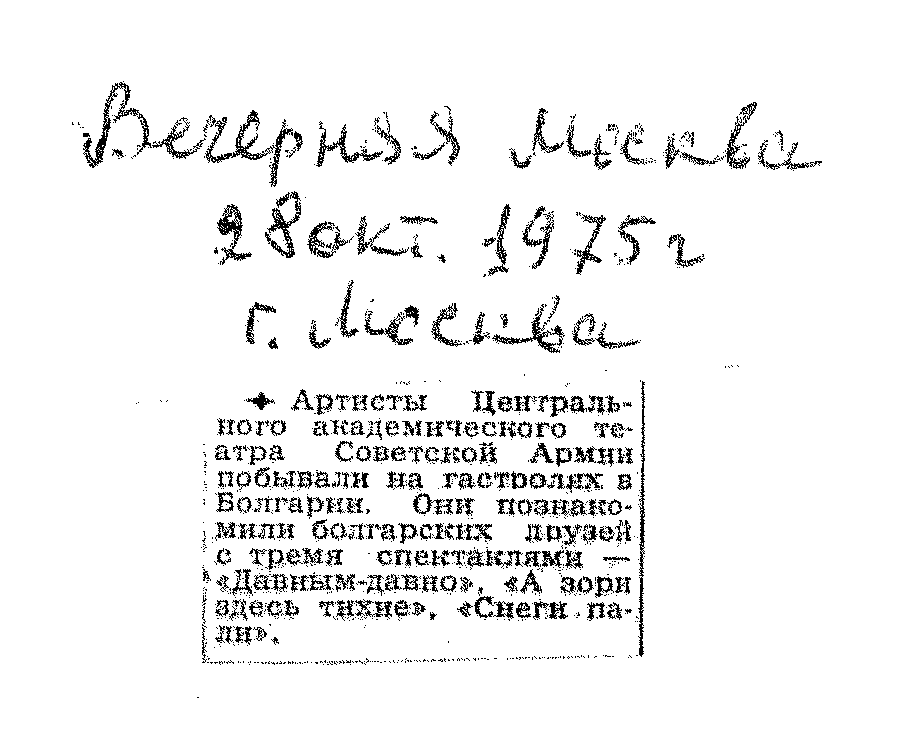 Вечерняя Москва
28 окт. 1975 г
г. Москва
✦ Артисты Централь-
ного академического те-
атра Советской Армии
побывали на гастролях в
Болгарии. Они познако-
мили болгарских друзей
с тремя спектаклями —
«Давным-давно», «А зори
здесь тихие», «Снеги па-
ли».